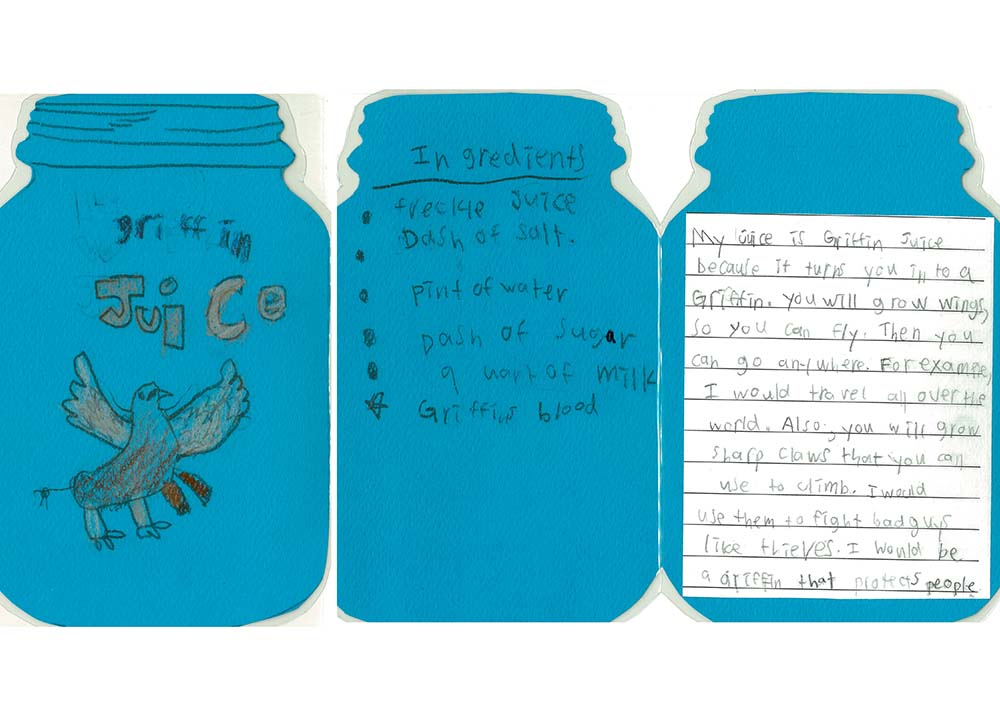 griffin
Juice
Ingredients
freckle juice
Dash of salt.
pint of water
Dash of sugar
a quart of milk
Griffins blood
My juice is Griffin Juice
because it turns you in to a
Griffin. you will grow wings,
so you can fly. Then you
can go anywhere. For example,
I would travel all over the
world. Also, you will grow
sharp claws that you can
use to climb. I would
use them to fight bad guys
like thieves. I would be
a griffin that protects people.